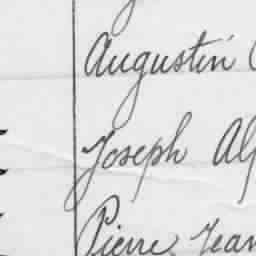 Augustin
Joseph
Pierre Jean